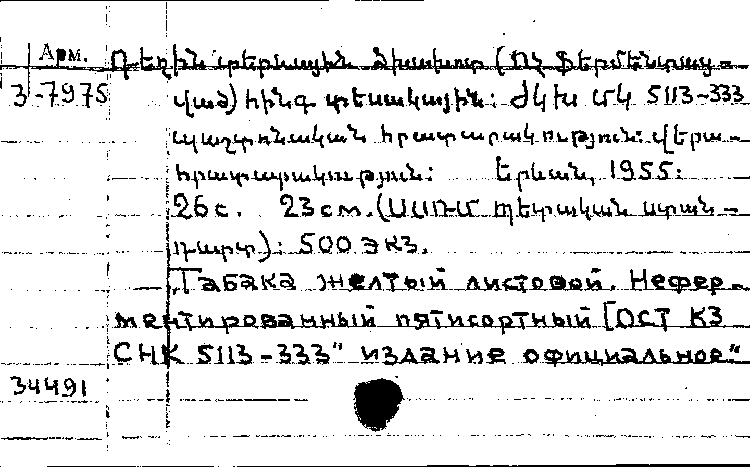 Арм. Դեղին տերևային ծխախոտ (Ոչ ֆերմենտաց-
3-7975 ված) հինգ տեսակային: ԺԿԽ ՍԿ 5113-333
պաշտոնական հրատարակություն: Վերա-
հրատարակություն: Երևան, 1955:
26с. 23см. (ՍՍՌՄ պետական ստան-
դարտ): 500 экз.
Табака желтый листовой. Нефер-
ментированный пятисортный [ОСТ КЗ
СНК 5113-333" издание официальное."
34491